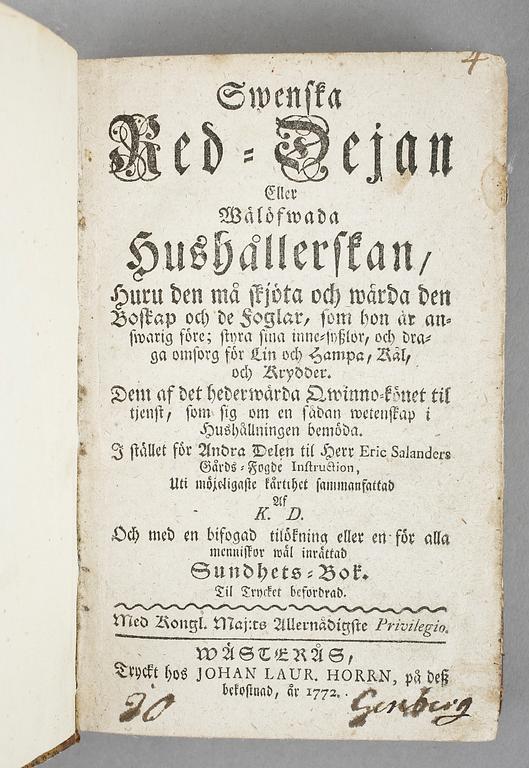 4
Swenska
Red-Dejan
Eller
Wälöfwada
Hushållerskan,
Huru den må skjöta och wårda den
Boskap och de Foglar, som hon är an-
swarig före; styra sina inne-syßlor, och dra-
ga omsorg för Lin och Hampa, Kål,
och Krydder.
Dem af det hederwärda Qwinno-könet til
tjenst, som sig om en sådan wetenskap i
Hushållningen bemöda.
I stället för Andra Delen til Herr Eric Salanders
Gårds-Fogde Instruction,
Uti möjeligaste kårthet sammanfattad
Af
K. D.
Och med en bifogad tilökning eller en för alla
menniskor wäl inrättad
Sundhets-Bok.
Til Trycket befordrad.
Med Kongl. Maj:ts Allernådigste Privilegio.
WÄSTERÅS,
Tryckt hos JOHAN LAUR. HORRN, på deß
bekostnad, år 1772.
20 Genberg